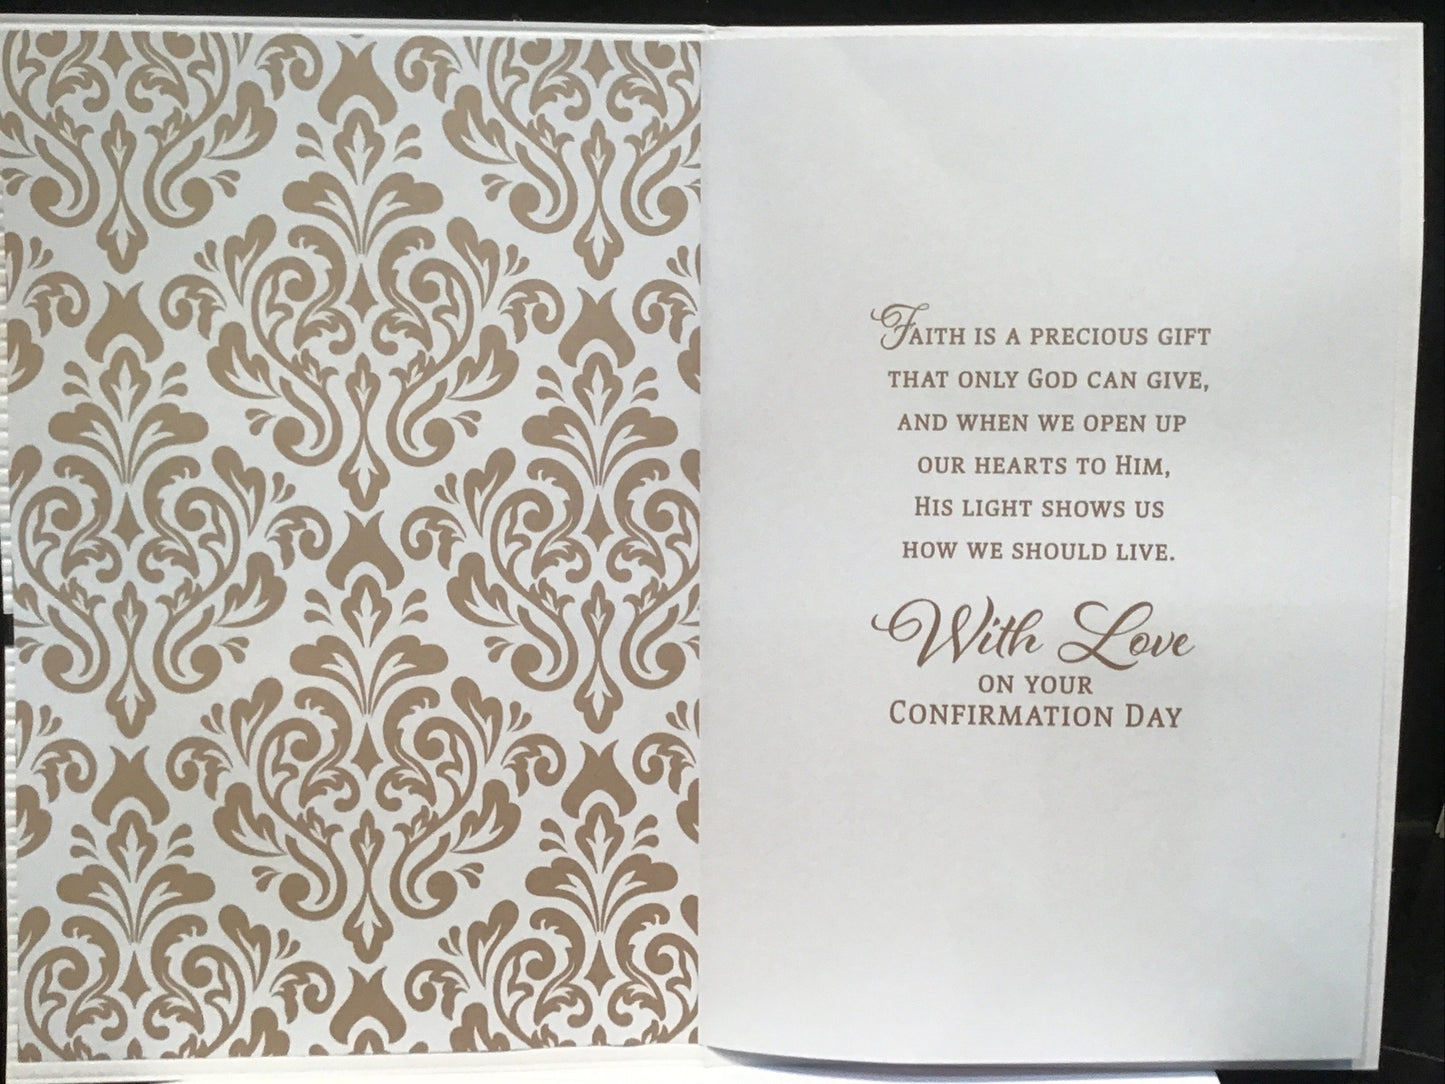 Faith is a precious gift
that only God can give,
and when we open up
our hearts to Him,
His light shows us
how we should live.
With Love
on your
Confirmation Day